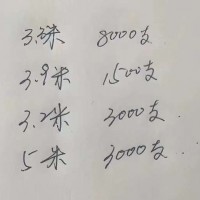 3.3米 8000支
3.9米 1500支
3.2米 3000支.
5米 3000支.